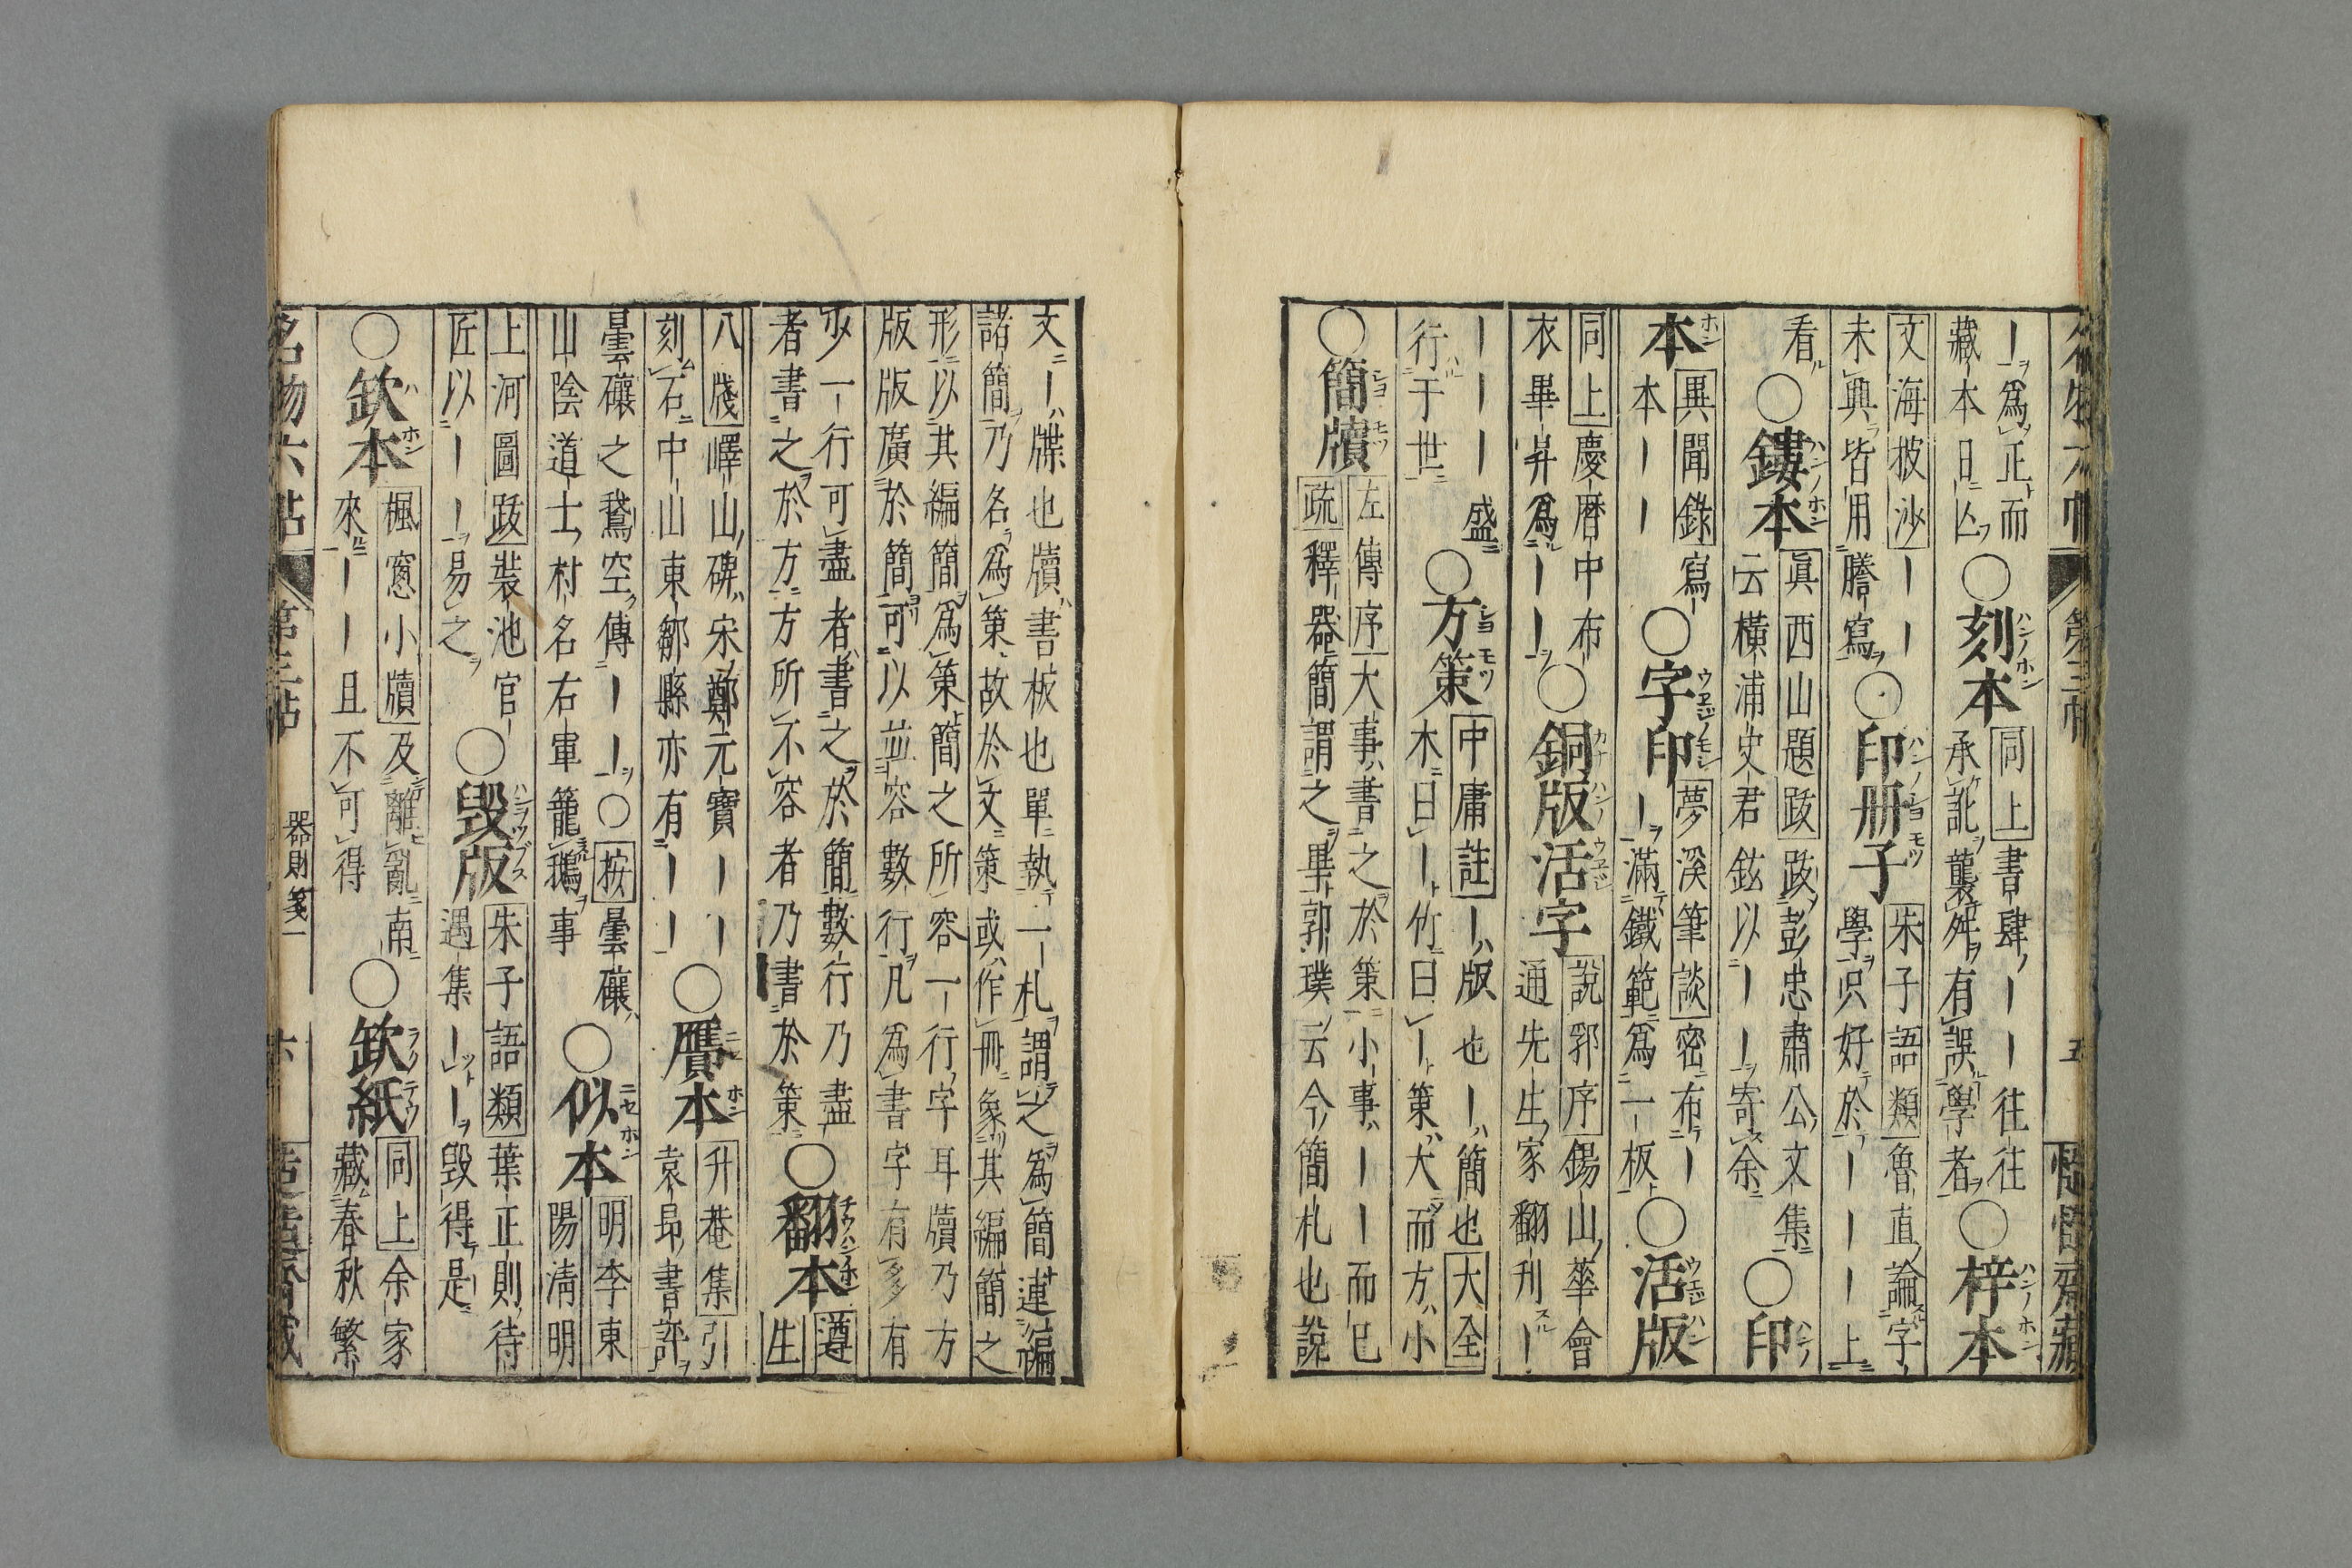 名物六帖 第三帖 五 慥慥齋藏
｜爲正而
藏本日亾○刻本 同上書肆｜｜往往
承訛襲舛有誤學者○梓本
文海披沙｜｜｜
未興皆用謄寫○印册子 朱子語類 魯直論字
學只好於｜｜｜上
看○鏤本 眞西山題跋 跋彭忠肅公文集
云橫浦史君鉉以｜｜寄余○印
本 異聞錄 寫
本｜｜○字印 夢溪筆談 密布｜
｜滿鐵範爲一板○活版
同上 慶曆中布
衣畢昇爲｜｜○銅版活字 說郛序 錫山華會
通先生家翻刋｜
｜｜｜｜盛
行于世○方策 中庸註｜版也｜簡也 大全
木曰｜竹曰｜策大而方小
○簡牘 左傳序 大事書之於策小事｜｜而已
疏 釋器簡謂之畢郭璞云今簡札也說
文｜牒也牘書板也單執一札謂之爲簡連編
諸簡乃名爲策故於文策或作冊象其編簡之
形以其編簡爲策簡之所容一行字耳牘乃方
版版廣於簡可以並容數行凡爲書字有多有
少一行可盡者書之於簡數行乃盡
者書之於方方所不容者乃書於策○翻本 遵生
八牋 嶧山碑宋鄭元寶｜｜
刻石中山東鄒縣亦有｜｜○贋本 升菴集 引
袁昂書評
曇䃰之鵞空傳｜｜○按 曇䃰
山陰道士村名右軍籠鵝事○似本 明李東
陽淸明
上河圖跋 裝池官
匠以｜｜易之○毀版 朱子語類 葉正則待
遇集｜｜毀得是
○欽本 楓窻小牘 及離亂南
來｜｜且不可得○欽紙 同上 余家
藏春秋繁
名物六帖 第三帖 器財箋一 六